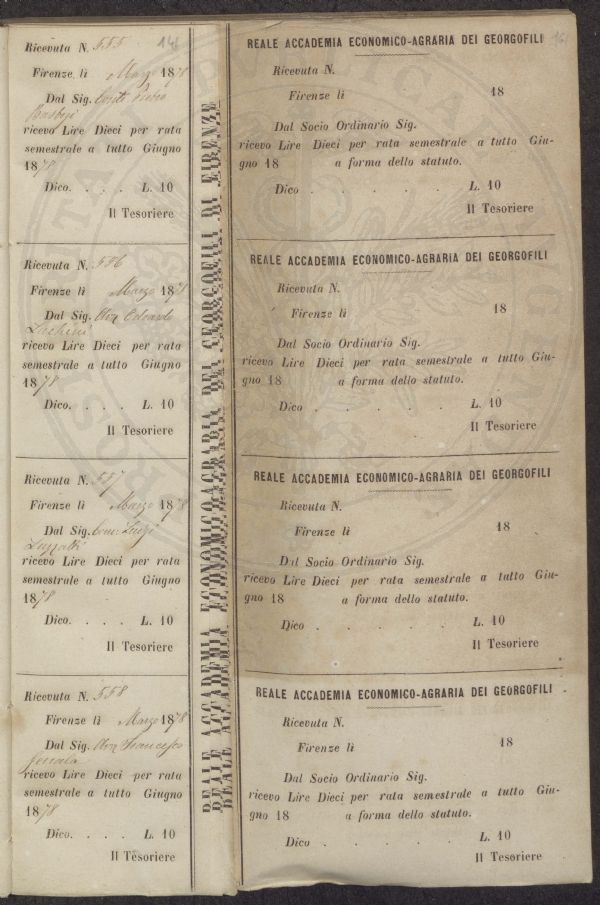 Ricevuta N. 555
14
Firenze, lì Marzo 1878
Dal Sig. Conte Pietro
Bastogi
ricevo Lire Dieci per rata
semestrale a tutto Giugno
1878
Dico. . . . L. 10
Il Tesoriere
Ricevuta N. 556
Firenze lì Marzo 1878
Dal Sig. Odoardo
Luchini
ricevo Lire Dieci per rata
semestrale a tutto Giugno
1878
Dico. . . . L. 10
Il Tesoriere
Ricevuta N. 557
Firenze lì Marzo 1878
Dal Sig. Luigi
Luzzatti
ricevo Lire Dieci per rata
semestrale a tutto Giugno
1878
Dico. . . . L. 10
Il Tesoriere
Ricevuta N. 558
Firenze lì Marzo 1878
Dal Sig. Francesco
Ferrara
ricevo Lire Dieci per rata
semestrale a tutto Giugno
1878
Dico. . . . L. 10
Il Tesoriere
REALE ACCADEMIA ECONOMICO-AGRARIA DEI GEORGOFILI DI FIRENZE
REALE ACCADEMIA ECONOMICO-AGRARIA DEI GEORGOFILI
Ricevuta N.
Firenze lì 18
Dal Socio Ordinario Sig.
ricevo Lire Dieci per rata semestrale a tutto Giu-
gno 18 a forma dello statuto.
Dico . . . . . L. 10
Il Tesoriere
REALE ACCADEMIA ECONOMICO-AGRARIA DEI GEORGOFILI
Ricevuta N.
Firenze lì 18
Dal Socio Ordinario Sig.
ricevo Lire Dieci per rata semestrale a tutto Giu-
gno 18 a forma dello statuto.
Dico . . . . . L. 10
Il Tesoriere
REALE ACCADEMIA ECONOMICO-AGRARIA DEI GEORGOFILI
Ricevuta N.
Firenze lì 18
Dal Socio Ordinario Sig.
ricevo Lire Dieci per rata semestrale a tutto Giu-
gno 18 a forma dello statuto.
Dico . . . . . L. 10
Il Tesoriere
REALE ACCADEMIA ECONOMICO-AGRARIA DEI GEORGOFILI
Ricevuta N.
Firenze lì 18
Dal Socio Ordinario Sig.
ricevo Lire Dieci per rata semestrale a tutto Giu-
gno 18 a forma dello statuto.
Dico . . . . . L. 10
Il Tesoriere